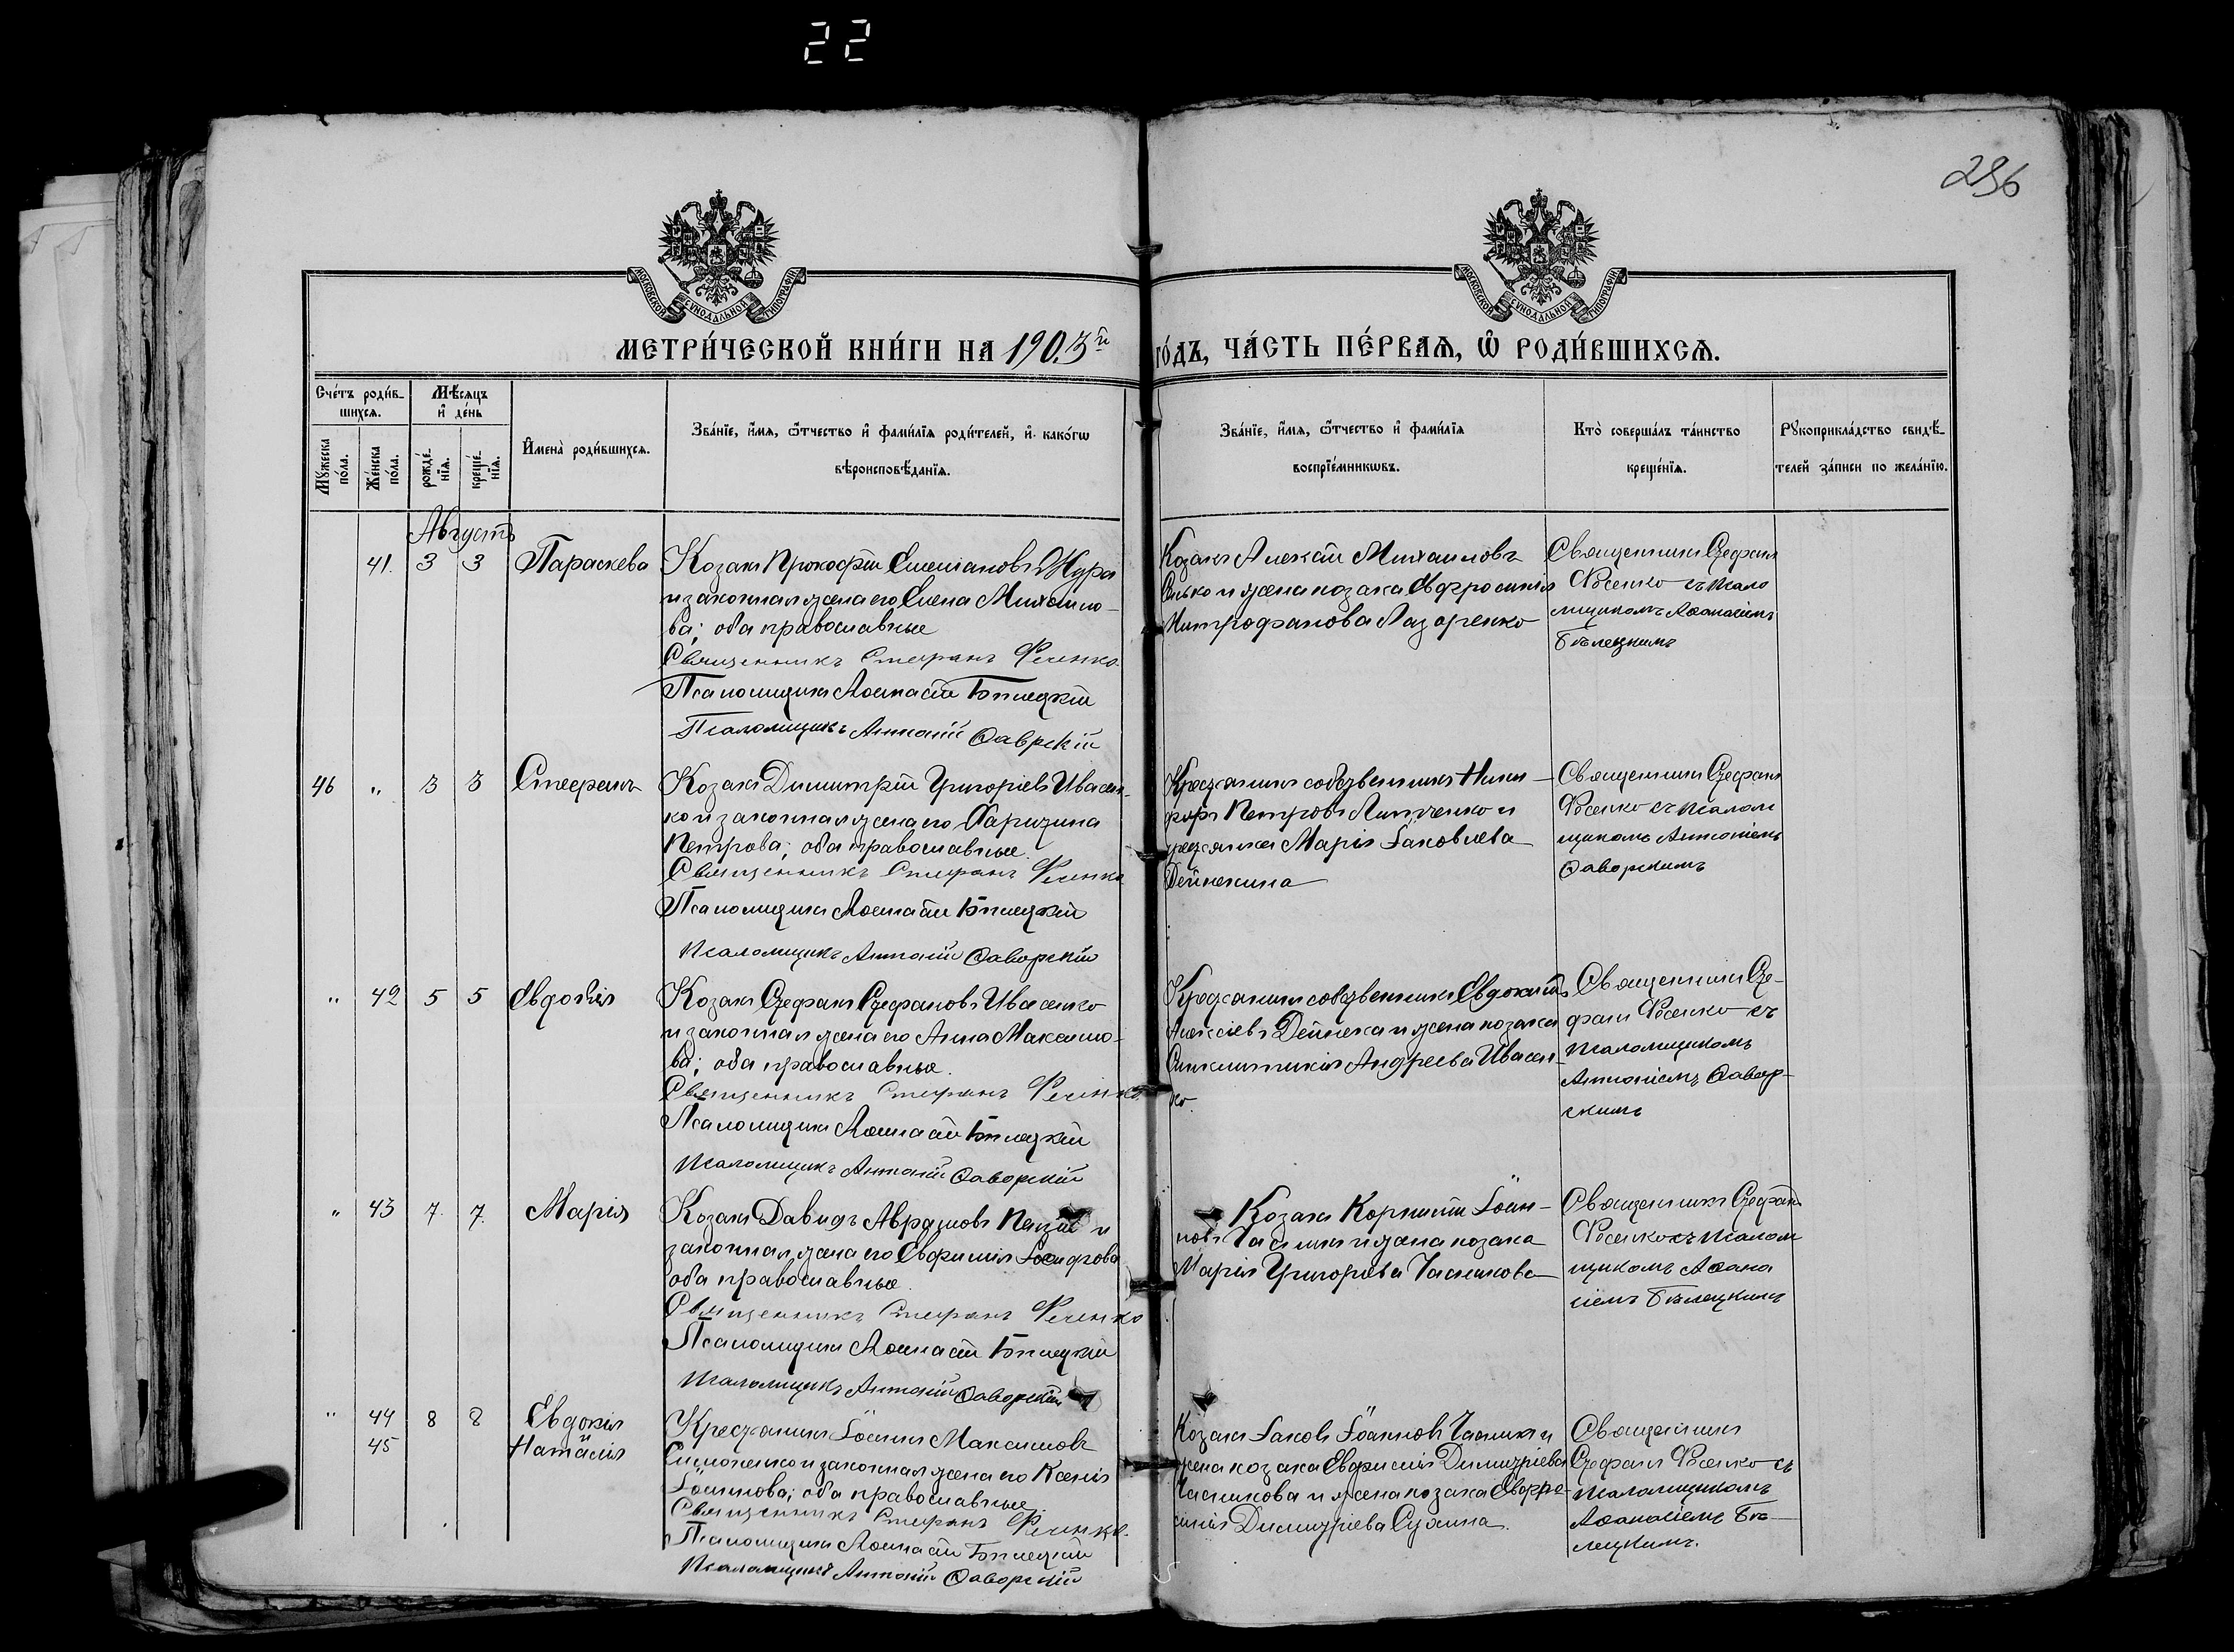 22
296
МОСКОВСКОЙ СѴНОДАЛЬНОЙ ТИПОГРАФІИ
МОСКОВСКОЙ СѴНОДАЛЬНОЙ ТИПОГРАФІИ
МЕТРИ́ЧЕСКОЙ КНИ́ГИ НА 1903й
ГО́ДЪ, ЧА́СТЬ ПЕ́РВАѦ, Ѽ РОДИ́ВШИХСѦ.
Сче́тъ роди́в-
шихсѧ.
Мѣ́сѧцъ
и҆ де́нь
Мꙋжеска по́ла.
Же́нска по́ла.
рожде́нїѧ.
креще́нїѧ.
И҆мена̀ роди́вшихсѧ.
Зва́нїе, и҆́мѧ, ѻ҆́тчество и҆ фамн́лїѧ роди́телей, и҆ како́гѡ
вѣроисповѣ́данїѧ.
Зва́нїе, и҆́мѧ, ѻ҆́тчество и҆ фами́лїѧ
воспрїе́мникѡвъ.
Кто̀ соверша́лъ та́инство
креще́нїѧ.
Рꙋкоприкла́дство свидѣ́-
телей за́писи по жела́нїю.
Августъ
41. 3 3 Параскева
Козакъ Прокофій Стефановъ Жура
и законная жена его Елена Михаило-
ва; оба православные
Священникъ Стефанъ Фесенко.
Псаломщикъ Аѳанасій Бѣлецкій
Псаломщикъ Антоній Ѳаворскій
Козакъ Алексій Михаиловъ
и жена козака Евфросинія
Митрофанова Лазоренко
Священникъ Стефанъ
Фесенко съ псало
мщикомъ Аѳанасіемъ
Бѣлецкимъ
46 " 3 3 Стефанъ
Козакъ Димитрій Григоріевъ Ивасен-
ко и законная жена его Харитина
Петрова; оба православные.
Священникъ Стефанъ Фесенко
Псаломщикъ Аѳанасій Бѣлецкій
Псаломщикъ Антоній Ѳаворскій
Крестьянинъ собственникъ Ники-
форъ Петровъ Литченко и
Марія Іаковлева
Дейнекина
Священникъ Стефанъ
Фесенко съ псалом
щикомъ Антоніемъ
Ѳаворскимъ
" 42 5 5 Евдокія
Козакъ Стефанъ Стефановъ Ивасенко
и законная жена его Анна Максимо-
ва; оба православные.
Священникъ Стефанъ Фесенко.
Псаломщикъ Аѳанасій Бѣлецкій
Псаломщикъ Антоній Ѳаворскій
Крестьянинъ собственникъ Евдокимъ
Алексіевъ Дейнека и жена козака
Андреева Ивасен-
ко.
Священникъ Сте-
фанъ Фесенко съ
псаломщикомъ
Антоніемъ Ѳавор-
скимъ
" 43 7. 7. Марія
Козакъ Давидъ Аврамовъ и
законная жена его Евфимія Іосифова
оба православные.
Священникъ Стефанъ Фесенко
Псаломщикъ Аѳанасій Бѣлецкій
Псаломщикъ Антоній Ѳаворскій
Козакъ Корнилій Іоан-
новъ Часникъ и жена козака
Марія Григорьева Часникова
Священникъ Стефанъ
Фесенко съ псалом
щикомъ Аѳана
сіемъ Бѣлецкимъ
" 44 8 8 Евдокія
45 и Наталія
Крестьянинъ Іоаннъ Максимовъ
Симоненко и законная жена его Ксенія
Іоаннова; оба православные.
Священникъ Стефанъ Фесенко.
Псаломщикъ Аѳанасій Бѣлецкій
Псаломщикъ Антоній Ѳаворскій
Козакъ Іаковъ Іоанновъ Часникъ и
жена козака Евфимія Димитріева
Часникова и жена козака Евфро-
синія Димитріева Сухина.
Священникъ
Стефанъ Фесенко съ
псаломщикомъ
Аѳанасіемъ Бѣ-
лецкимъ.